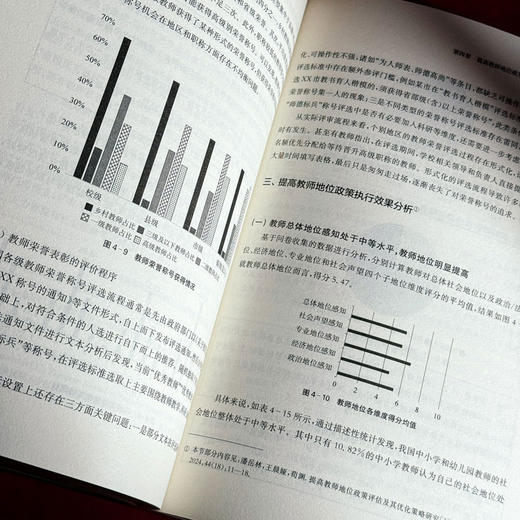 教师获得了某种形式的荣誉称号
称号机会在地区和职称方面存在不均衡问题。
70%
60%
50%
40%
30%
20%
10%
0%
校级
县级
市级
乡村教师占比
三级及以下教师占比
二级教师占比
高级教师占比
图4-9 教师荣誉称号获得情况
教师荣誉表彰的评价程序
各级教师荣誉称号评选流程通常是先由政府部门
XX称号的通知》等文件形式，自上而下发布评选通知
础上，对符合条件的人选进行自下而上的推荐
通知文件进行文本分析后发现，当前“优秀教师”
标兵”等称号，在评选标准选取上主要围绕教师教学
设置上还存在三方面关键问题：一是部分文本
第四章 提高教师地位
化、可操作性不强，诸如“为人师表、师德高尚”等条目，都缺乏可操作
评选标准中存在额外参评门槛，例如某市在“教书育人楷模”评选标准
选XX市教书育人楷模的，须获得省部级(含)以上荣誉称号”，此类条
荣誉称号集一人的现象；三是不同类型的荣誉称号评选标准存在雷同
“师德标兵”等称号评选中是否有必要加入科研等维度，还需要进一步考虑
从实际评审流程来看，个别地区的教师荣誉评选过程存在形式化
时有发生。甚至有教师指出，在评选期间，学校相关领导和负责人直接
名额优先分配给等待晋升高级职称的教师。形式化的评选流程导致许多
大量时间填写表格，最后只是匆匆走过场，逐渐丧失了对荣誉称号的追求。
三、提高教师地位政策执行效果分析①
(一) 教师总体地位感知处于中等水平，教师地位明显提高
基于问卷收集的数据进行分析，分别计算教师对总体社会地位以及政治/法
位、经济地位、专业地位和社会声望四个子地位维度评分的平均值，结果如图4
就教师总体地位而言，得分5.47。
总体地位感知
社会声望感知
专业地位感知
经济地位感知
政治地位感知
0 2 4 6 8 10
图4-10 教师地位各维度得分均值
具体来说，如表4-15所示，通过描述性统计发现，我国中小学和幼儿园教师的社
会地位整体处于中等水平。其中只有10.82%的中小学教师认为自己的社会地位处
① 本节部分内容见：潘岳林，王晨臻，荀渊. 提高教师地位政策评估及其优化策略研究
2024,44(18):11—18.